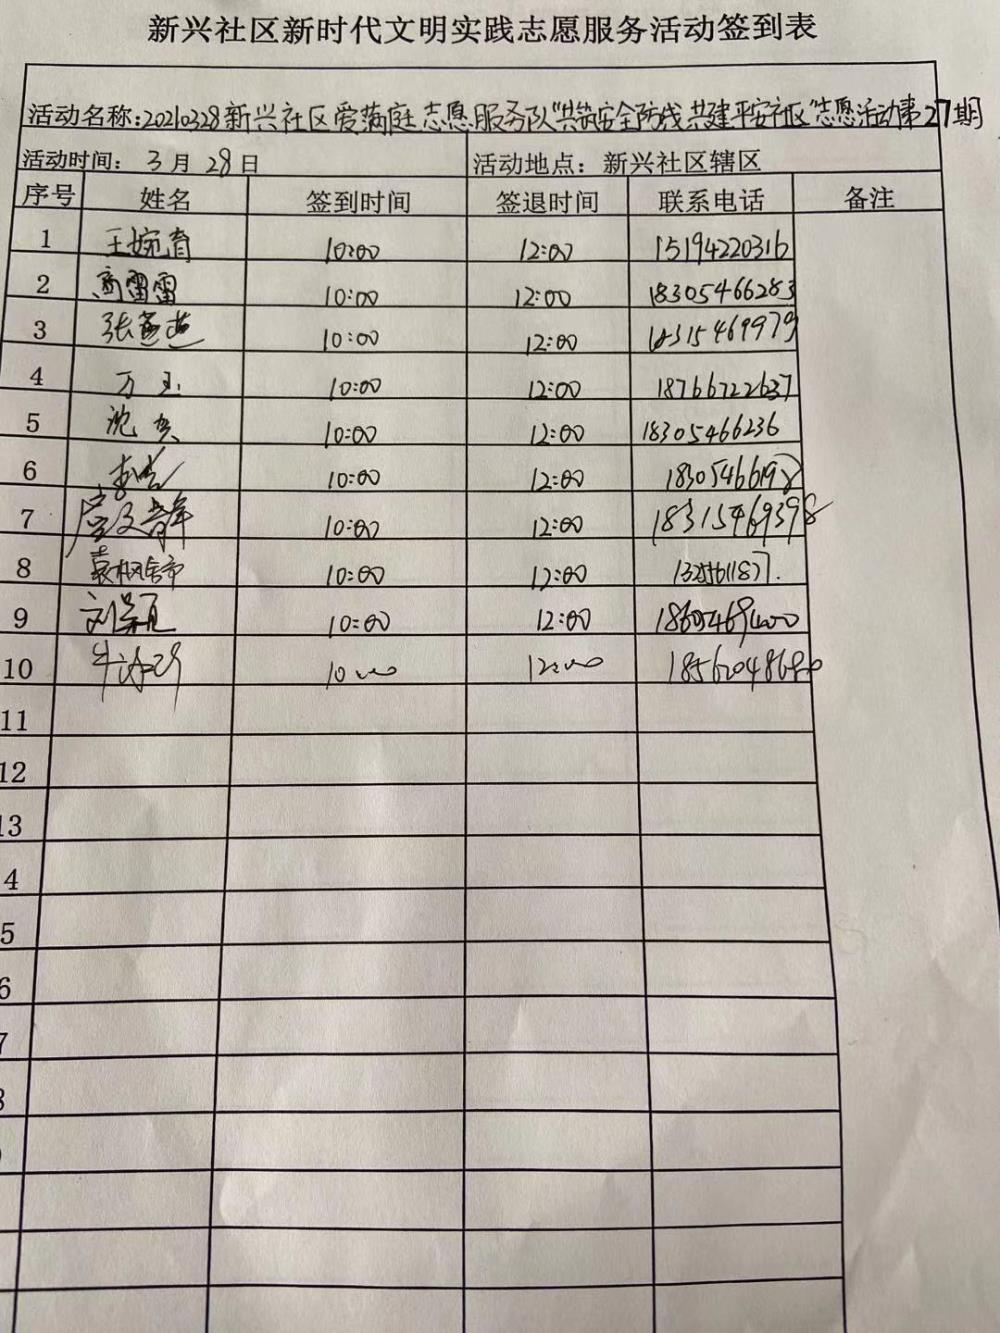 新兴社区新时代文明实践志愿服务活动签到表
活动名称:20210328新兴社区爱满庭志愿服务队"共筑安全防线 共建平安社区"志愿活动第27期
活动时间：3月28日 活动地点：新兴社区辖区
序号 姓名 签到时间 签退时间 联系电话 备注
1 王婉育 10:00 12:00 15194220316
2 商雷雷 10:00 12:00 18305466283
3 张燕燕 10:00 12:00 18315469979
4 万玉 10:00 12:00 18766722637
5 沈奖 10:00 12:00 18305466236
6 10:00 12:00
7 10:00 12:00 18315469398
8 10:00 12:00
9 10:00 12:00
10 10:00 12:00
11
12
13
4
5
6
7
8